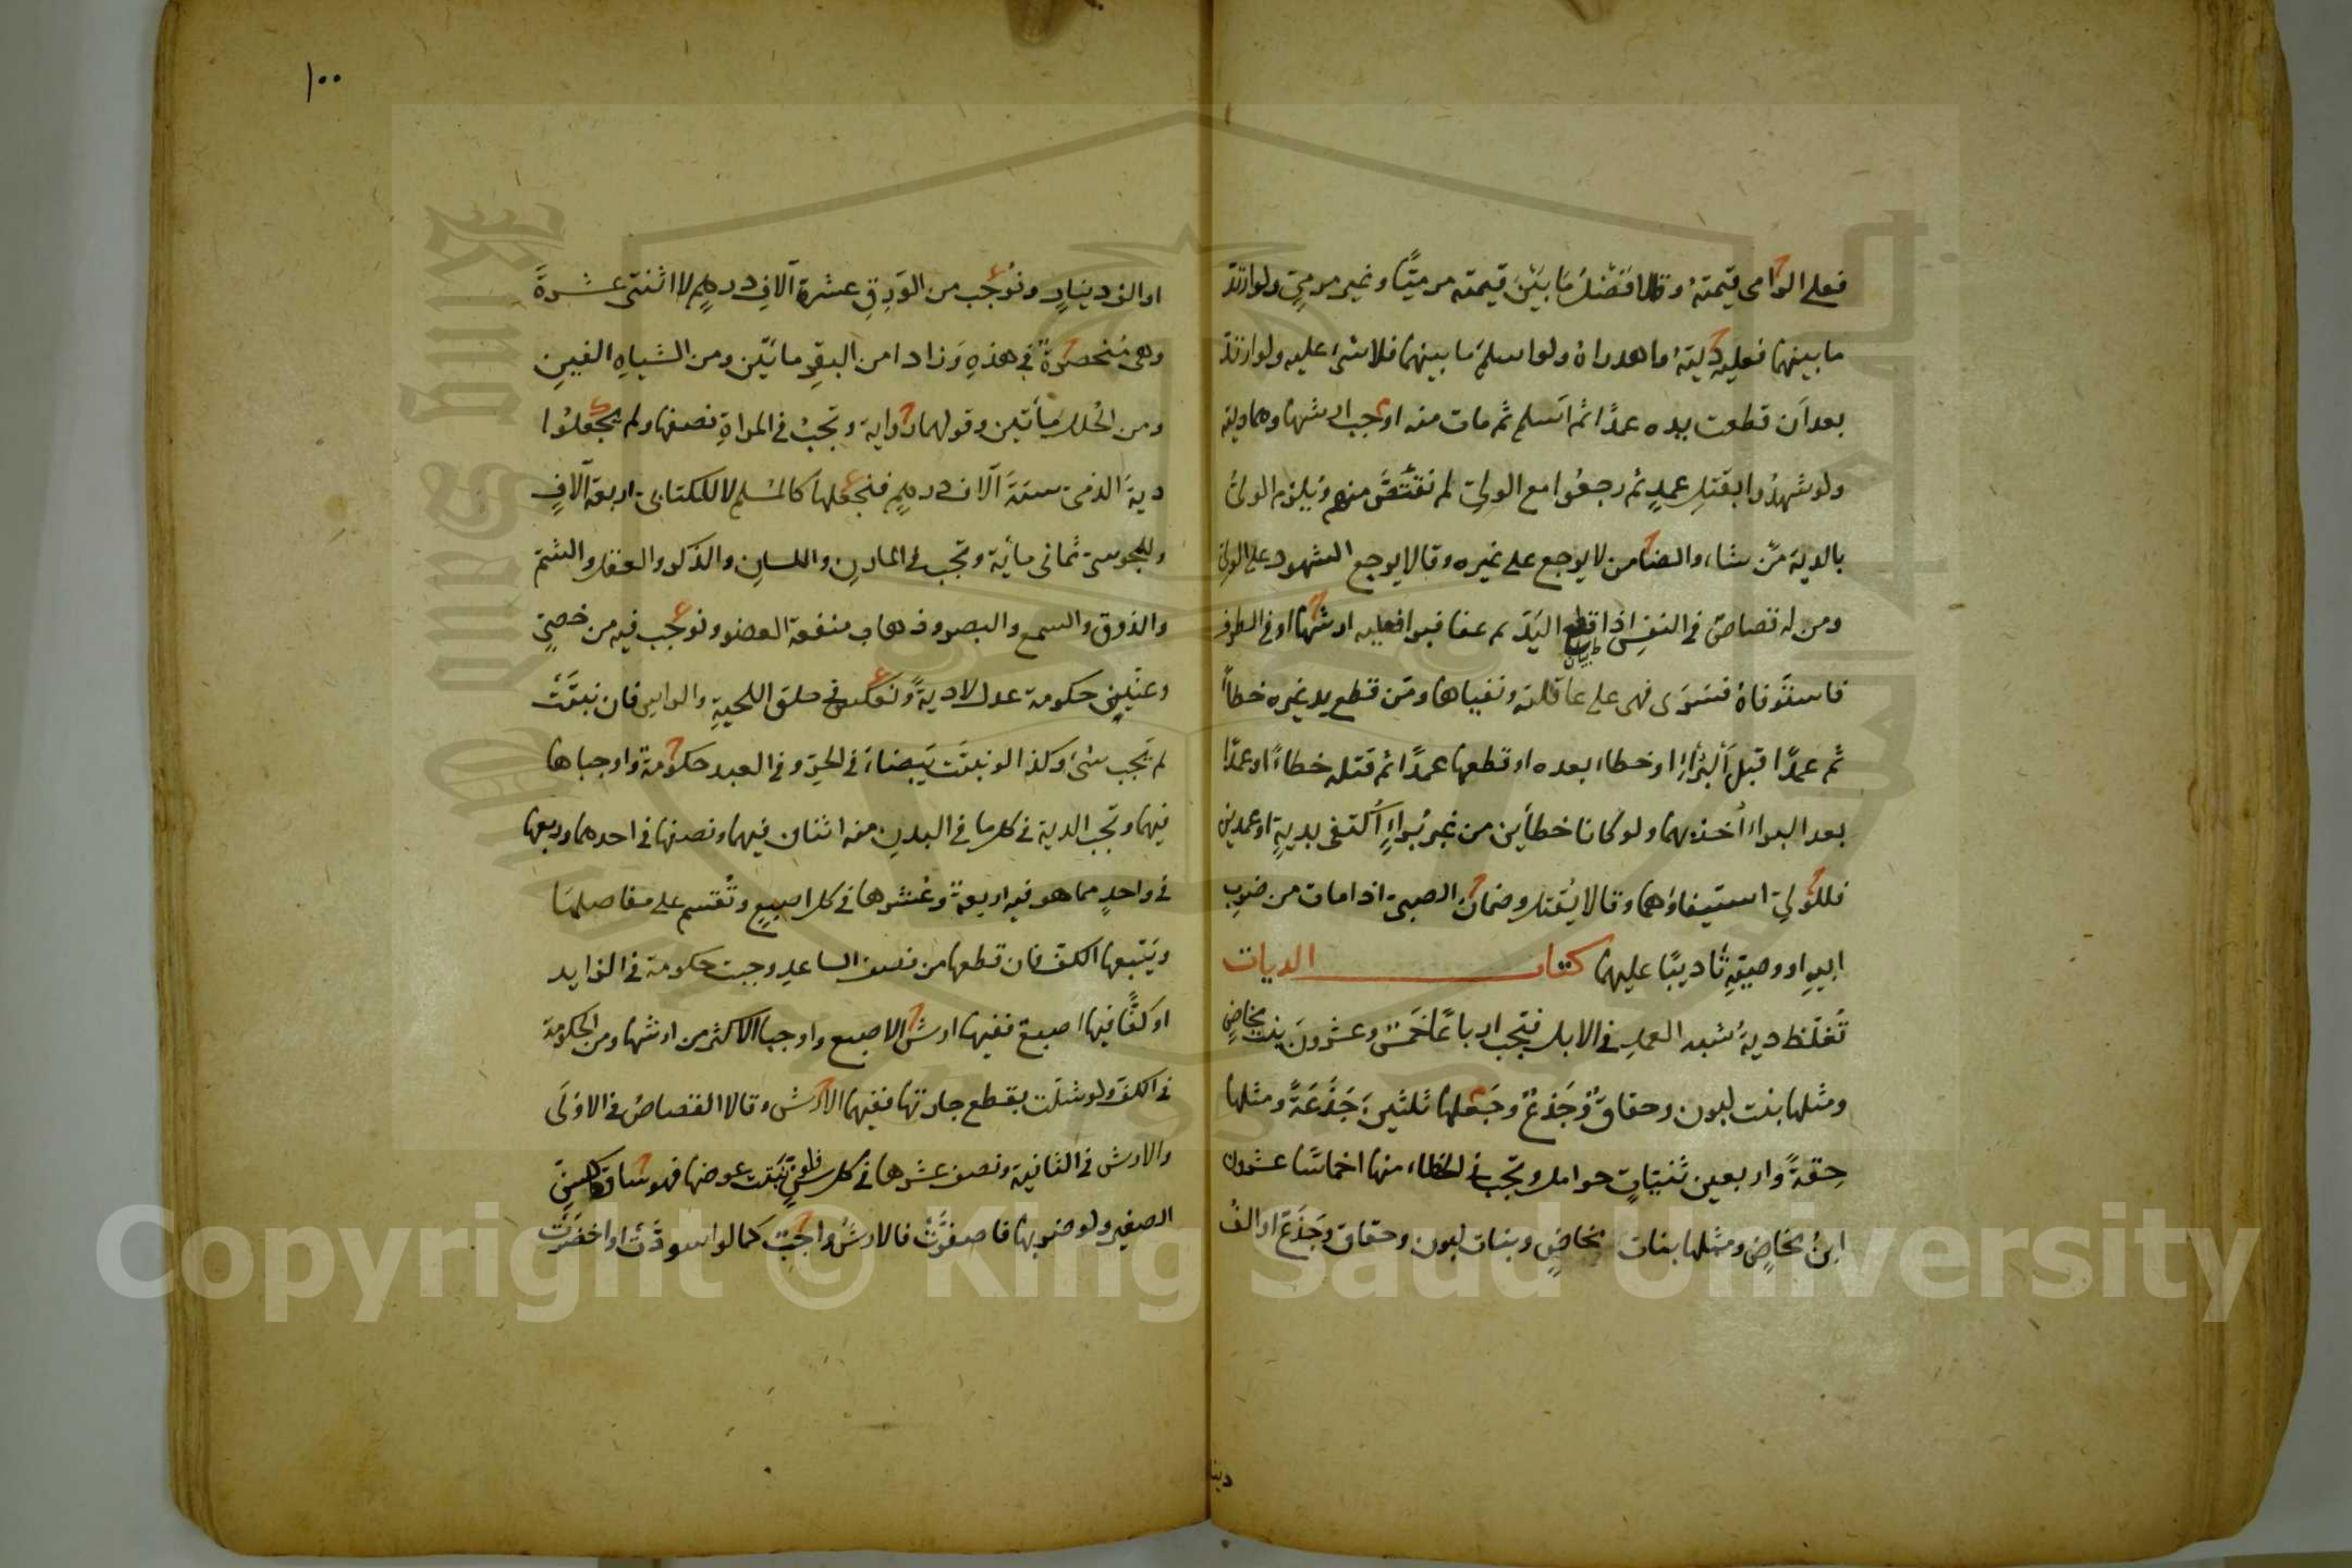 فعلى الرامى قيمتهُ وقالا فَضْلُ مَا بَيْنَ قيمته مرميًّا وغير مرميٍّ ولو ارتدّ
ما بينهما فعليه ديتهُ واهدراهُ ولو اسلمَ ما بينهما فلا شئ عليه ولو ارتدّ
بعد اَن قطعت يده عمدًا ثم اسلم ثم مات منه اوجب ارشها وهما ديته
ولو شهدُوا بقتلِ عمدٍ ثم رجعُوا مع الولىِّ لم نقتَصَّ منهم ويلزم الولىُّ
بالدية مَن شاء والضامن لا يرجع على غيره وقالا يرجع الشهود على الولى
ومن له قصاصٌ فى النفسِ اذا قطع اليَدَ ثم عفا فبرا فعليه ارشها او فى الطرف
فاستَوفاهُ فَسَرَى فهى على عاقلته ونفياها ومَن قطع يد غيره خطأً
ثم عمدًا قبلَ اَلبُرْءِ او خطاء بعده او قطعها عمدًا ثم قتله خطاءً او عمدًا
بعد البرء اُخذ بهما ولو كانا خطأين من غير بُرءٍ اُكتفى بديةٍ او عمدين
فللولىِّ استيفاؤهما وقالا يُقتل وضمان الصبى اذا مات من ضرب
ابيهِ او وصيّهِ تأديبًا عليهما كتاب الديات
تُغلّظ ديةُ شبه العمدِ فى الابل فتجب ارباعًا خَمسٌ وعشرونَ بنت مخاضٍ
ومثلها بنت لبون وحقاقٌ وَجَذعٌ وجَعلها ثلثين جَذَعَةً ومثلها
حِقةً واربعين ثَنيّاتٍ حوامل وتجب فى الخطاء منها اخماسًا عشرون
ابنُ مخاضٍ ومثلها بنات مخاضٍ وبنات لبون وحقاق وجَذَع او الفُ
دينا
١٠٠
او الف دينارٍ ونُوجب من الوَرِقِ عشرة آلافِ درهمٍ لا اثنتى عشرةَ
وهى منحصرةٌ فى هذهِ وَزادا من البقر مائتين ومن الشياهِ الفين
ومن الحُلل مَائتين وقولهما رواية وتجبُ فى المراةِ نصفها ولم يجعلُوا
ديةَ الذمى ستةَ آلاف درهمٍ فنجعلها كالمسلم لا للكتابى اربعة آلافٍ
وللمجوسى ثمانى مأية وتجب فى المارِن واللسانِ والذكر والعقل والشم
والذوق والسمع والبصر وذهاب منفعة العضو ونوجب فيه من خصىٍّ
وعنّينٍ حكومة عدل لا ديةً ونعكس فى حلق اللحيةِ والراس فان نبتَت
لم يَجب شئ وكذا لو نبتَت بَيضاءَ فى الحرّ وفى العبد حكومة واوجباها
فيهما وتجب الدية فى كل ما فى البدن منه اثنان فيهما ونصفها فى احدهما وربعها
فى واحدٍ مما هو فيه اربعةٌ وعُشرها فى كل اصبعٍ وتُقسم على مفاصلها
ويَتبعها الكف فان قطعها من نصف الساعدِ وجبت حكومة فى الزايد
او كَفًّا فيها اصبع ففيها ارش الاصبع واوجبا الاكثر من ارشها ومن الحكومة
فى الكف ولو شلّت بقطع جارتها ففيهما الارش وقالا القصاصُ فى الاولَى
والارش فى الثانية ونصف عشرها فى كل سنٍّ فلو نبَتت عوضها فهو ساقط كسِنِّ
الصغير ولو ضربها فاصفرَّتْ فالارشُ واجبٌ كما لو اسودَّت او اخضرَّت
Copyright © King Saud University